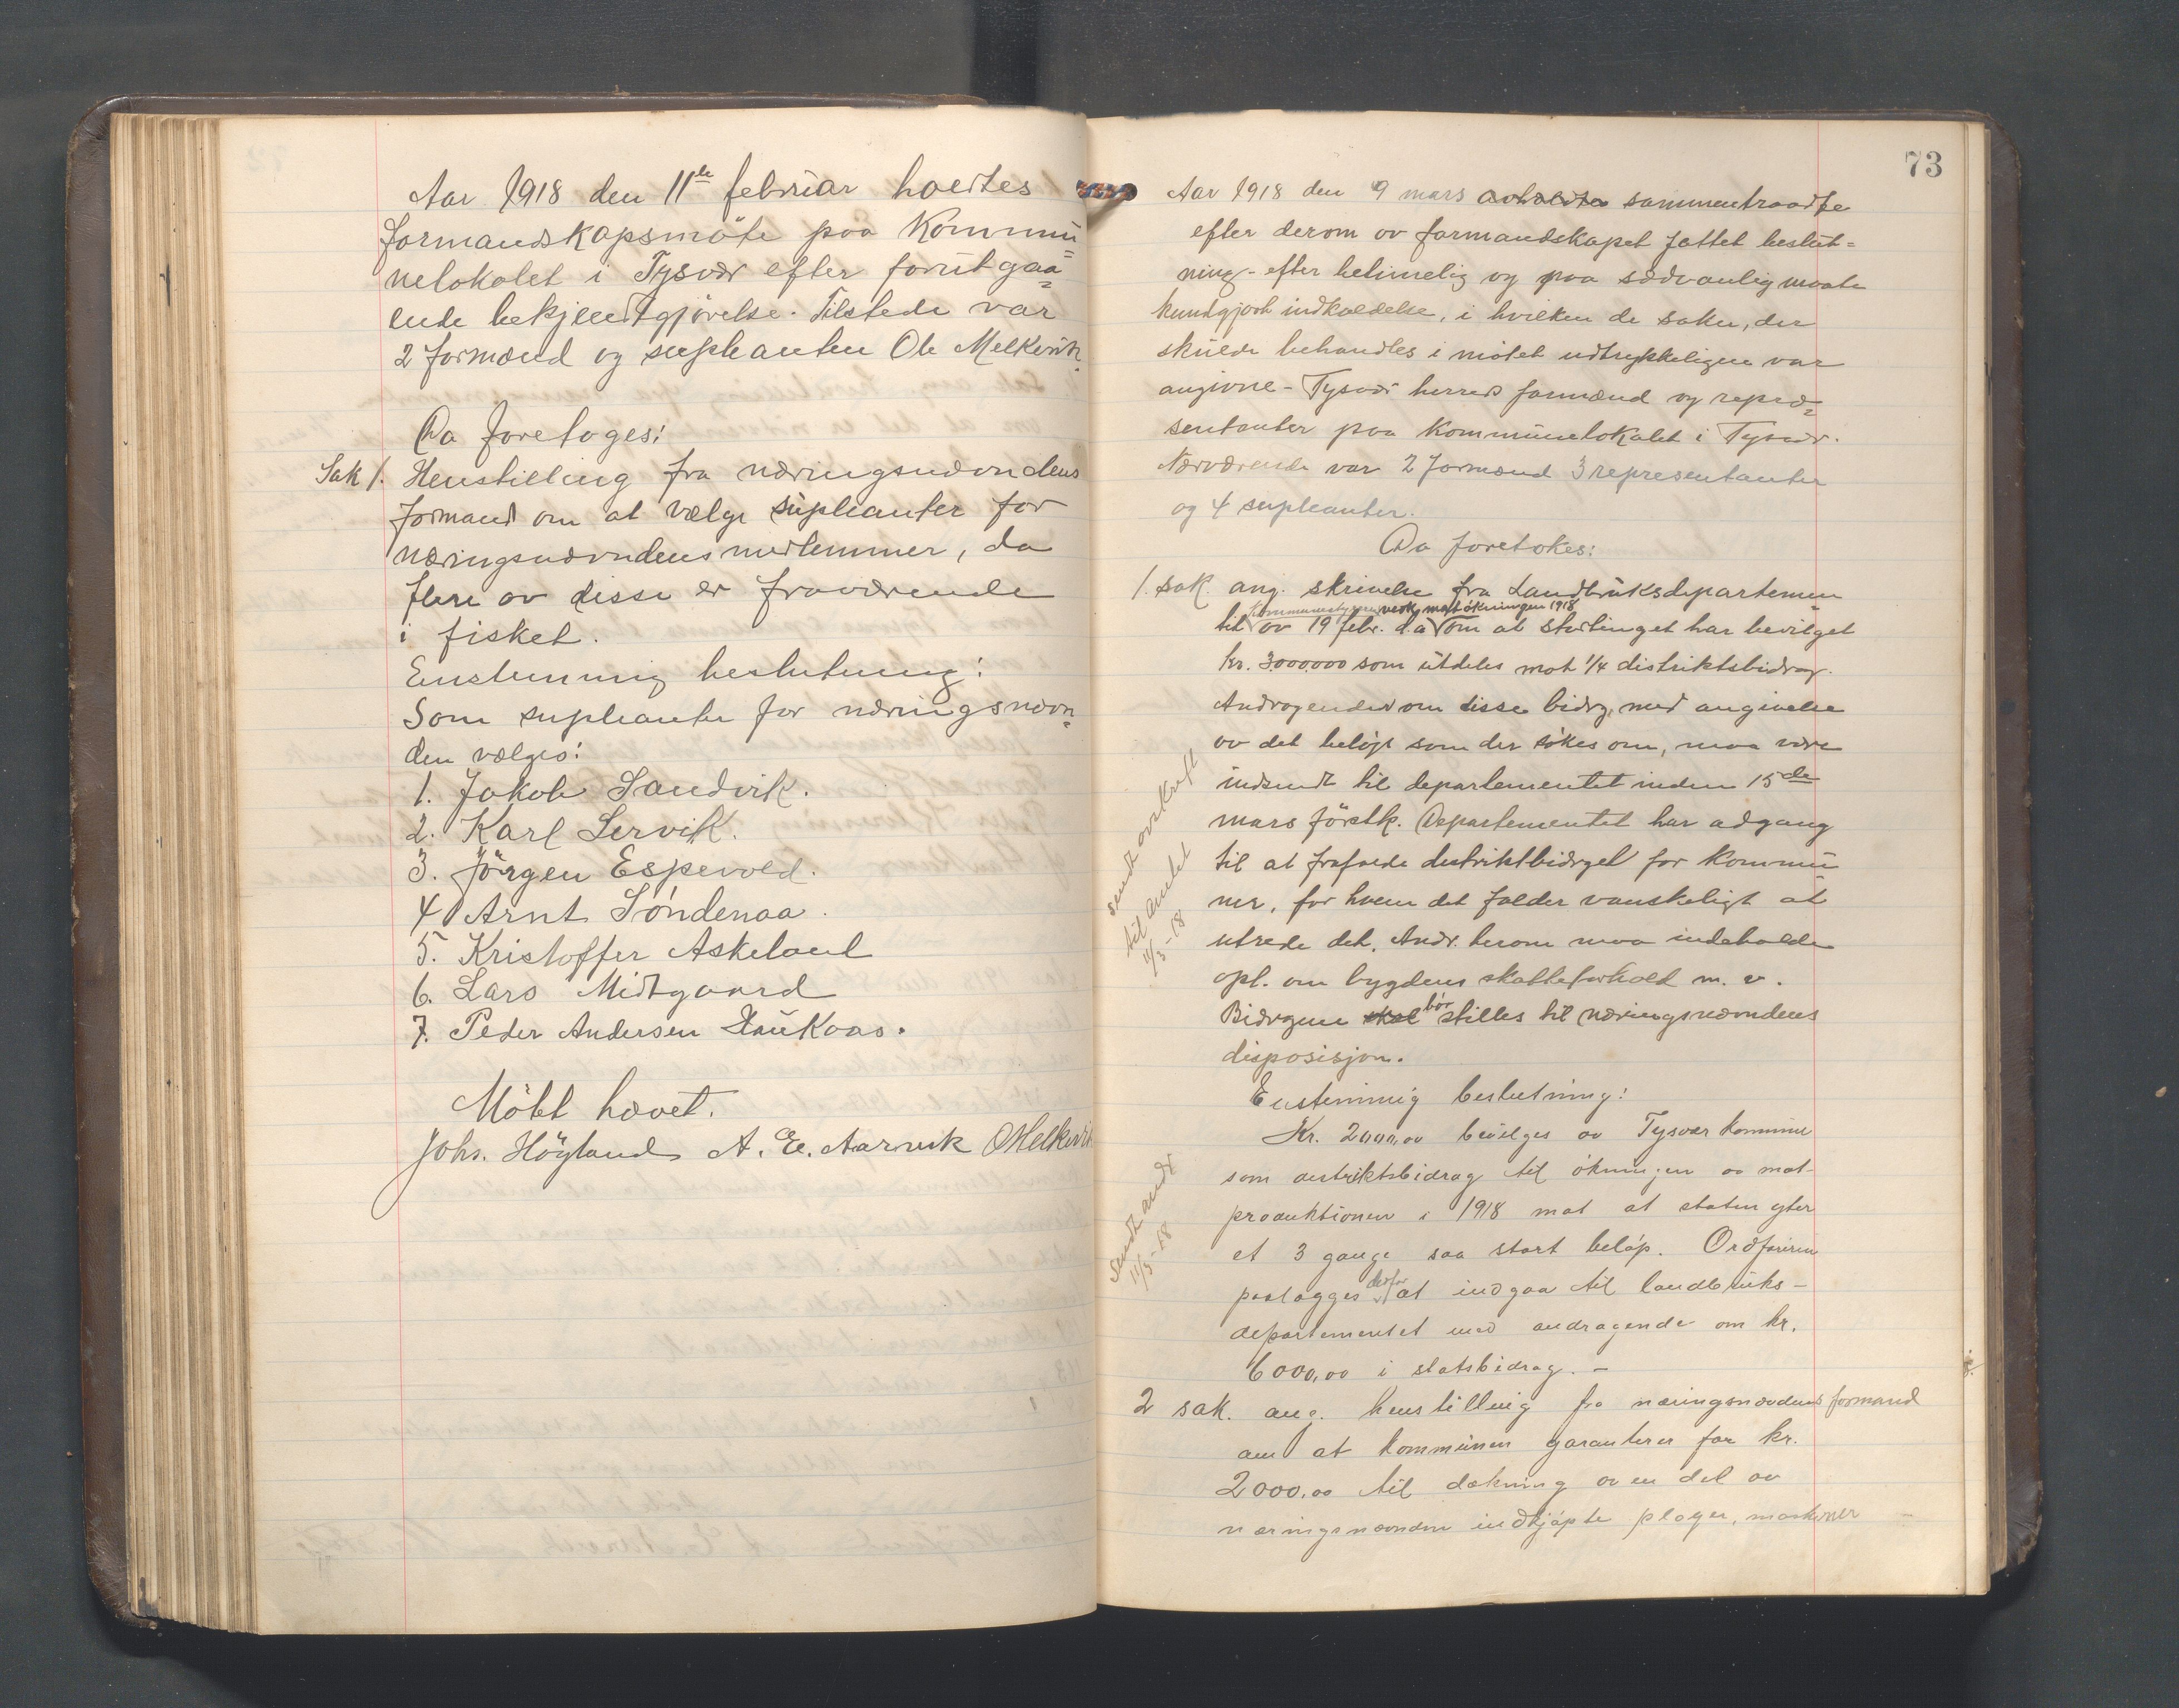 Aar 1918 den 11te februar holdtes
formandskapsmöte paa Kommu=
nelokalet i Tysvær efter forutgaa=
ende bekjendtgjörelse. Tilstede var
2 formænd og supleanten Ole Melkevik.
Da foretoges:
Sak 1. Henstilling fra næringsnævndens
formand om at vælge supleanter for
næringsnævndens medlemmer, da
flere av disse er fraværende
i fisket.
Enstemmig beslutning:
Som supleanter for næringsnævn=
den vælges:
1. Jakob Sandvik.
2. Karl Servik.
3. Jörgen Espevold.
4 Arnt Söndenaa.
5. Kristoffer Askeland
6. Lars Midtgaard
7. Peder Andersen Haukaas.
Mötet hævet.
Johs. Höyland A. E. Aarvik OMelkevik
73
Aar 1918 den 9 mars avholdtes sammentraadte
efter derom av formandskapet fattet beslut=
ning - efter betimelig og paa sædvanlig maate
kundgjort indkaldelse, i hvilken de saker, der
skulde behandles i mötet udtrykkeligen var
angivne - Tysvær herreds formænd og repræ=
sentanter paa Kommunelokalet i Tysvær.
Nærværende var 2 formænd 3 representanter
og 4 supleanter.
Da foretokes:
1. sak. ang. skrivelse fra Landbruksdepartemen=
kommunestyrene vedk. matökningen 1918
til av 19 febr. d.a om at stortinget har bevilget
kr. 3000000 som utdeles mot 1/4 distriktsbidrag.
Andragender om disse bidrg. med angivelse
av det belöp som der sökes om, maa være
indsendt til departementet inden 15de
mars förstk. Departementet har adgang
til at frafalde distriktbidrget for kommu=
ner, for hvem det falder vanskeligt at
utrede det. Andr. herom maa indeholde
opl. om bygdens skatteforhold m. v.
Bidrgene skal bör stilles til næringsnævndens
disposisjon.
sendt avskrift
til amtet
11/3-18
Enstemmig beslutning:
Kr. 2000,00 bevilges av Tysvær kommune
som distriktsbidrag til ökningen av mat-
produktionen i 1918 mot at staten yter
et 3 gange saa stort belöp. Ordföreren
paalægges derfor at indgaa til landbruks-
departementet med andragende om kr.
6000,00 i statsbidrag. -
Sendt andr
11/3-18
2 sak. ang. henstilling fra næringsnævdens formand
om at kommunen garanterer for kr.
2000,00 til dækning av en del av
næringsnævnden indkjöpte ploger, maskiner